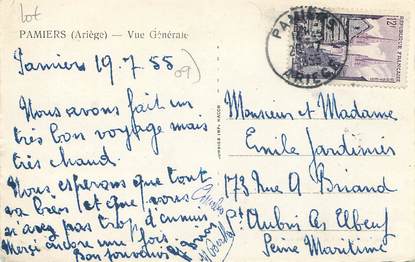 Lot
PAMIERS (Ariège) — Vue Générale
Pamiers 19.7.55
09)
Nous avons fait un
très bon voyage mais
très chaud.
Nous espérons que tout
va bien et que vous
n'avez pas trop d'ennuis
Merci encore une fois.
Bon souvenir
PAMIERS
ARIEGE
12F
REPUBLIQUE FRANÇAISE
Monsieur et Madame
Emile Jardinier
173 Rue A Briand
St Aubin les Elbeuf
Seine Maritime